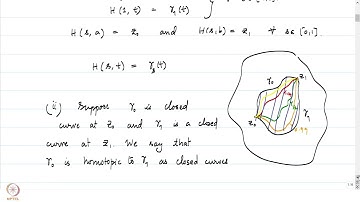 H (1, t) = γ₁(t)
H (s, a) = z₀ and H(s, b) = z₁ ∀ s ∈ [0,1].
H (s, t) = γₛ(t)
(ii) Suppose γ₀ is closed
curve at z₀ and γ₁ is a closed
curve at z₁. We say that
γ₀ is homotopic to γ₁ as closed curves
γ₀
z₁
z₀
γ₁
NPTEL